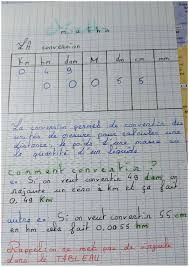 maths
LA conversion
Km hm dam M dm cm mm
0 4 9
0 0 5 5
La conversion permet de convertir des
unités de mesure pour calculer une
distance, le poids d'une masse ou
la quantité d'un liquide
comment convertir ?
ex: Si on veut convertir 49 dam on
rajoute un zéro à km et ça fait
0,49 Km
autre ex: Si on veut convertir 55 cm
en hm cela fait 0,0055 hm
Rappel: on met pas de virgule
dans le TABLEAU